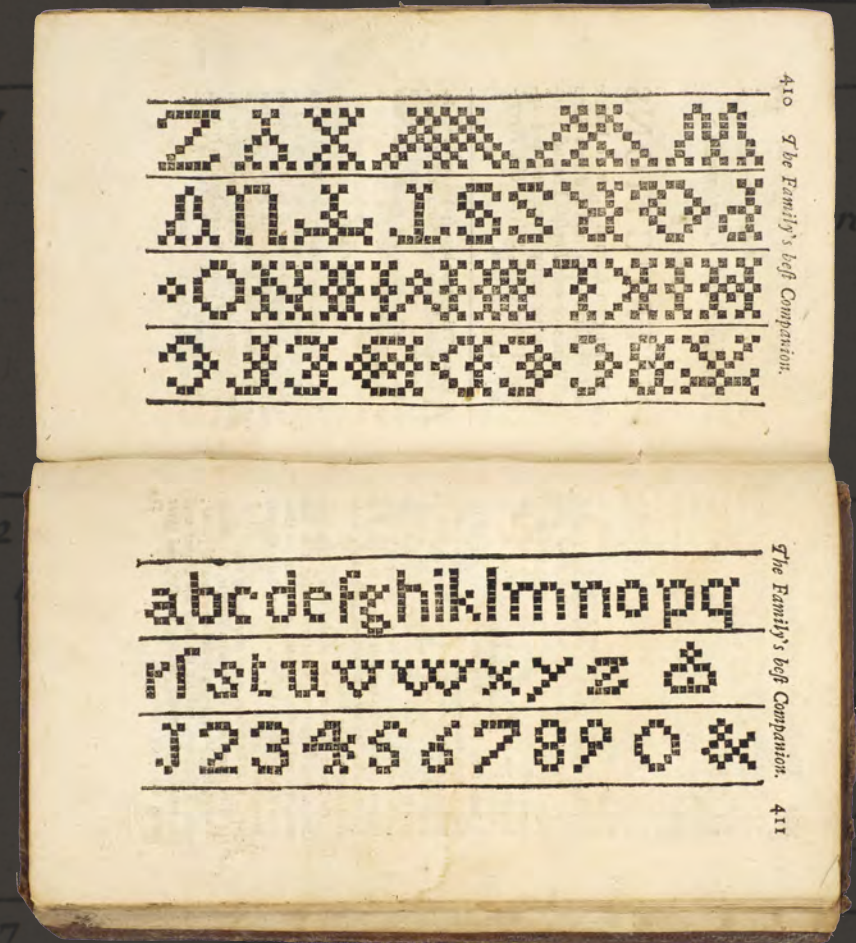 410 The Family's beſt Companion.
A B C C D D E F G
H I K L M M N N O
P Q R S S T T U V
W W W X Y Z
The Family's beſt Companion. 411
abcdefghiklmnopq
rſstuvwxyz
J234567890 &